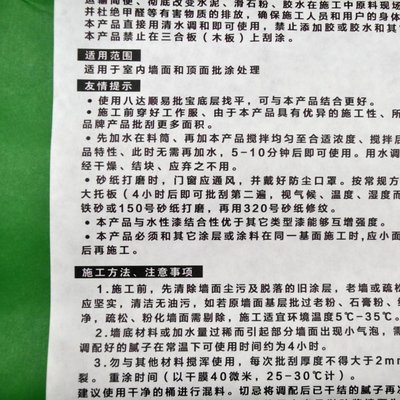 运输简便、彻底改变水泥、滑石粉、胶水在施工中原料现场
并杜绝甲醛等有害物质的排放，确保施工人员和用户的身体
本产品直接用清水调和即可使用，禁止添加胶或胶水和其
本产品禁止在三合板（木板）上刮涂。
适用范围
适用于室内墙面和顶面批涂处理
友情提示
• 使用八达顺易批宝底层找平，可与本产品结合更好。
• 施工前穿好工作服、由于本产品具有优异的施工性、所
品牌产品批刮更多面积。
• 先加水在料筒、再加本产品搅拌均匀至合适浓度、搅拌后
品特性、此时无需再加水，5-10分钟后即可使用。用水调
经干燥、结块、应弃之不用。
• 砂纸打磨时，门窗应通风，并戴好防尘口罩。按常规方
大托板（4小时后即可批刮第二遍，视气候、温度、湿度而
铁砂或150号砂纸打磨，再用320号砂纸修纹。
• 本产品与水性漆结合性优于其它类型漆能够互增强度。
• 本产品必须和其它涂层或涂料在同一基面施工时,应小面
后再施工。
施工方法、注意事项
1.施工前，先清除墙面尘污及脱落的旧涂层，老墙或疏
应坚实，清洁无油污，如若原墙面基层批过老粉、石膏粉、
净，疏松、粉化墙面需剔除，施工适宜环境温度5℃-35℃。
2.墙底材料或加水量过稀而引起部分墙面出现小气泡，需
调配好的腻子在常温下可使用时间约为4小时。
3.勿与其他材料搅浑使用，每次批刮厚度不得大于2mm
裂。重涂时间（以干膜40微米，25-30℃计）
建议使用干净的桶进行混料。切忌将调配后已干结的腻子再次